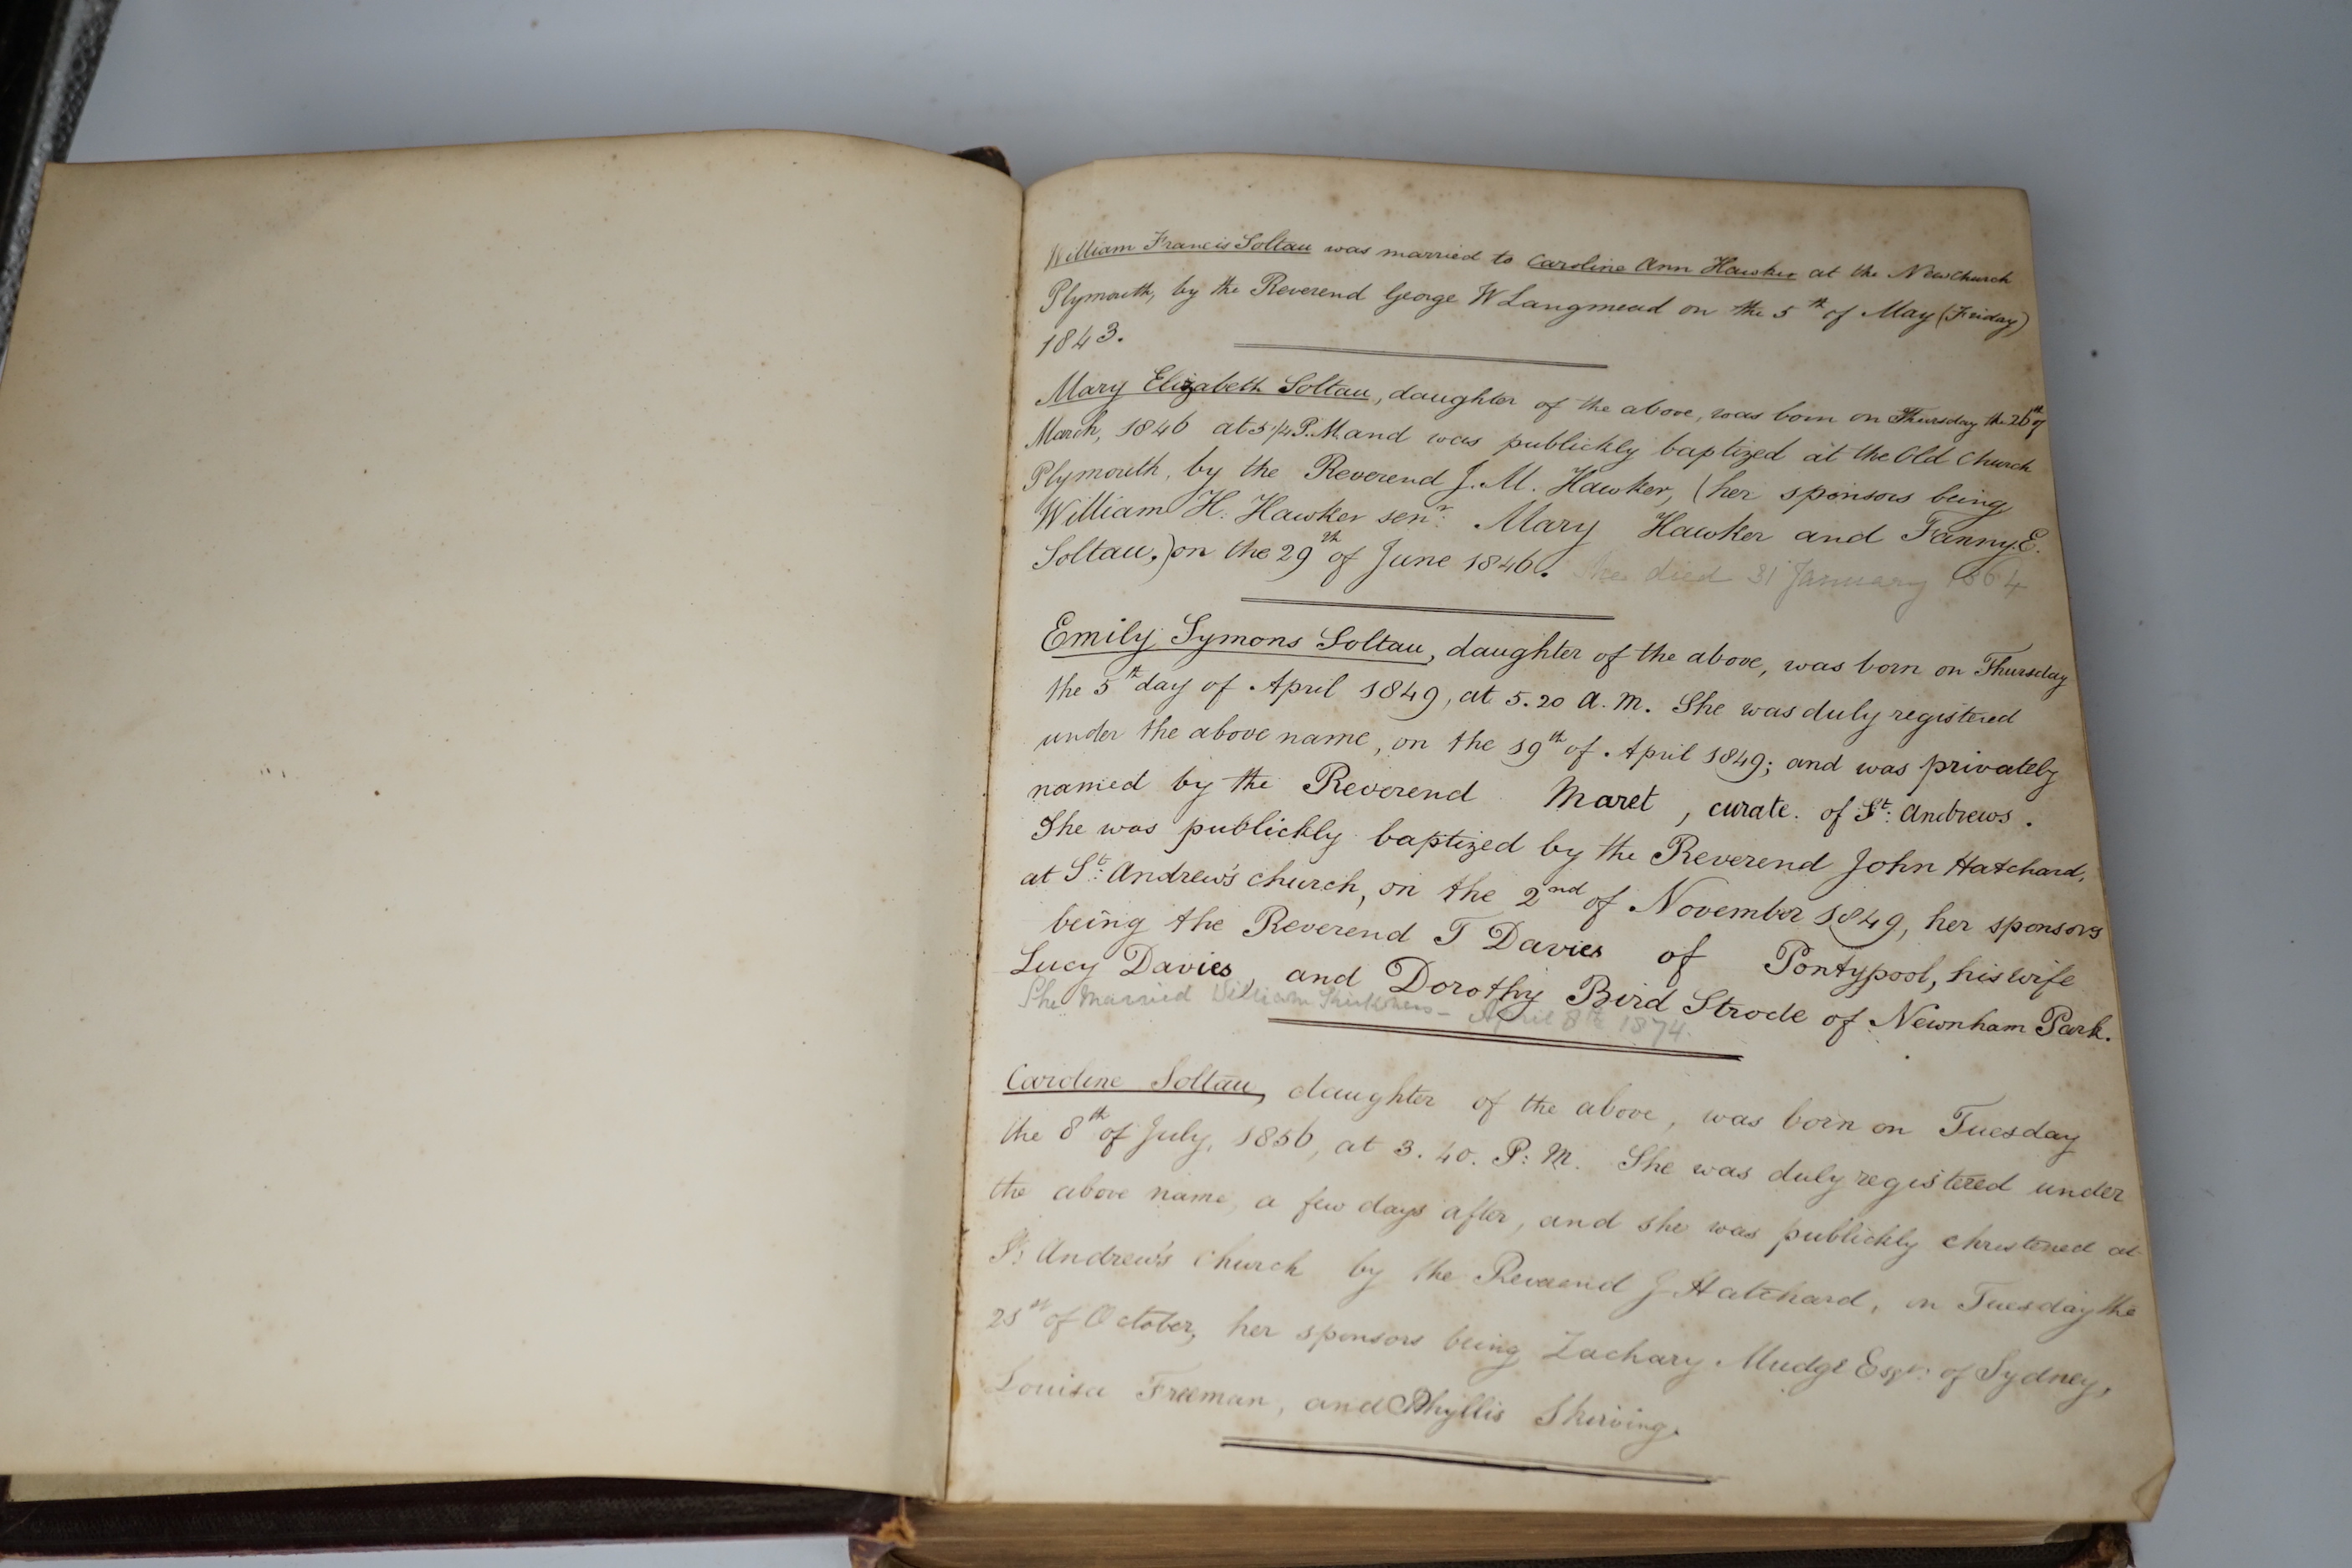 William Francis Soltau was married to Caroline Ann Hawker at the New Church
Plymouth, by the Reverend George W Langmead on the 5th of May (Friday)
1843.
Mary Elizabeth Soltau, daughter of the above, was born on Thursday the 26th of
March, 1846 at 5 1/4 P.M. and was publickly baptized at the Old Church
Plymouth, by the Reverend J. M. Hawker, (her sponsors being
William H. Hawker senr. Mary Hawker and Fanny E.
Soltau,) on the 29th of June 1846. She died 31 January 1864
Emily Symons Soltau, daughter of the above, was born on Thursday
the 5th day of April 1849, at 5.20 A.M. She was duly registered
under the above name, on the 19th of April 1849; and was privately
named by the Reverend Maret, curate. of St: Andrews.
She was publickly baptized by the Reverend John Hatchard,
at St: Andrew's church, on the 2nd of November 1849, her sponsors
being the Reverend T Davies of Pontypool, his wife
Lucy Davies, and Dorothy Bird Strode of Newnham Park.
She married William April 8th 1874.
Caroline Soltau, daughter of the above, was born on Tuesday
the 8th of July, 1856, at 3.40. P: M. She was duly registered under
the above name, a few days after, and she was publickly christened at
St: Andrew's Church by the Reverend J Hatchard, on Tuesday the
of October, her sponsors being Zachary Mudge Esqr: of Sydney,
Louisa Freeman, and Phyllis Skirving.